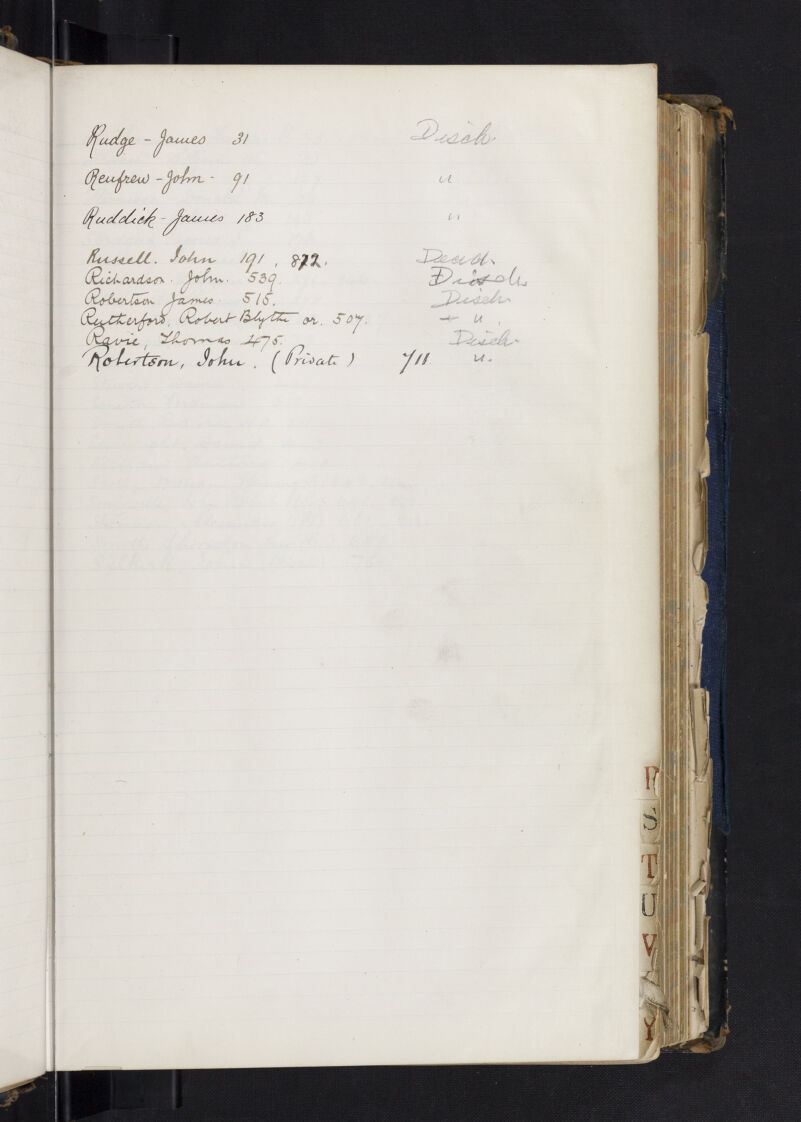 Rudge - James 31 Disch
Renfrew - John - 91 "
Ruddick - James 183 "
Russell. John 191, 872. Dead.
Richardson. John. 539. Disch
Robertson James. 515. Disch
Rutherford, Robert Blyth or. 507. - "
Ravie, Thomas 475. Disch
Robertson, John. (Private) 711 "
R
S
T
U
V
Y